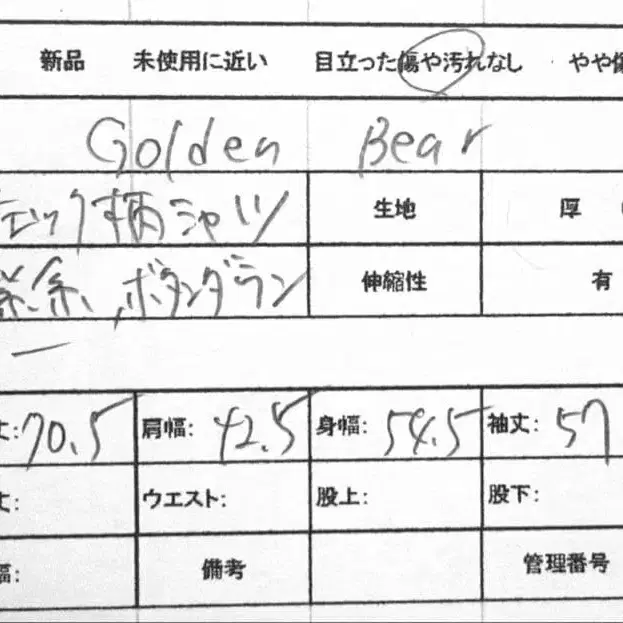 新品 未使用に近い 目立った傷や汚れなし やや傷
Golden Bear
チェック柄シャツ 生地 厚
系、ボタンダウン 伸縮性 有
ー
丈: 70.5 肩幅: 42.5 身幅: 54.5 袖丈: 57
丈: ウエスト: 股上: 股下:
幅: 備考 管理番号